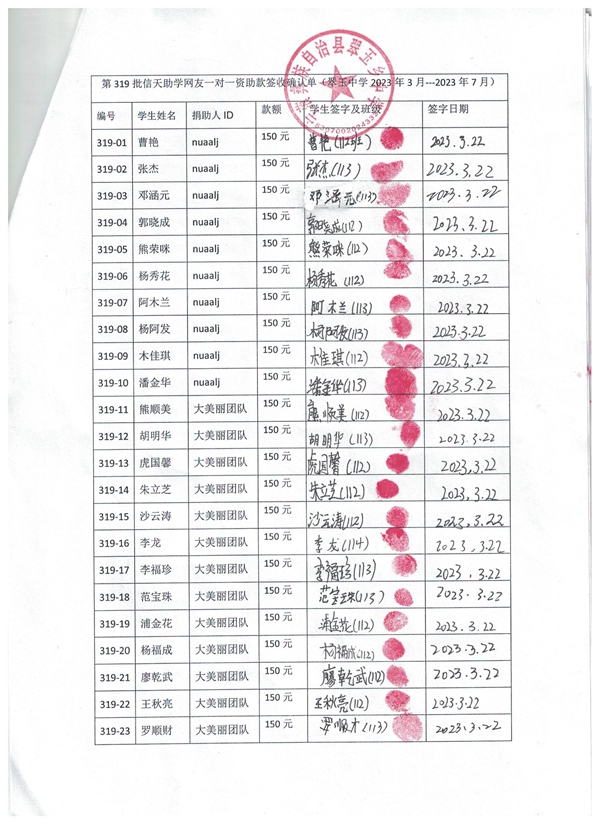 第 319 批信天助学网友一对一资助款签收确认单（翠玉中学 2023 年 3 月---2023 年 7 月）
编号 学生姓名 捐助人 ID 款额 学生签字及班级 签字日期
319-01 曹艳 nuaalj 150 元 曹艳(112班) 2023.3.22
319-02 张杰 nuaalj 150 元 张杰(113) 2023.3.22
319-03 邓涵元 nuaalj 150 元 邓涵元(113) 2023.3.22
319-04 郭晓成 nuaalj 150 元 郭晓成(112) 2023.3.22
319-05 熊荣咪 nuaalj 150 元 熊荣咪(112) 2023.3.22
319-06 杨秀花 nuaalj 150 元 杨秀花(112) 2023.3.22
319-07 阿木兰 nuaalj 150 元 阿木兰(113) 2023.3.22
319-08 杨阿发 nuaalj 150 元 杨阿发(113) 2023.3.22
319-09 木佳琪 nuaalj 150 元 木佳琪(112) 2023.3.22
319-10 潘金华 nuaalj 150 元 潘金华(113) 2023.3.22
319-11 熊顺美 大美丽团队 150 元 熊顺美(112) 2023.3.22
319-12 胡明华 大美丽团队 150 元 胡明华(113) 2023.3.22
319-13 虎国馨 大美丽团队 150 元 虎国馨(112) 2023,3,22
319-14 朱立芝 大美丽团队 150 元 朱立芝(112) 2023,3,22
319-15 沙云涛 大美丽团队 150 元 沙云涛(112) 2023.3.22
319-16 李龙 大美丽团队 150 元 李龙(114) 2023,3,22
319-17 李福珍 大美丽团队 150 元 李福珍(113) 2023.3.22
319-18 范宝珠 大美丽团队 150 元 范宝珠(113) 2023.3.22
319-19 浦金花 大美丽团队 150 元 浦金花(112) 2023.3.22
319-20 杨福成 大美丽团队 150 元 杨福成(112) 2023.3.22
319-21 廖乾武 大美丽团队 150 元 廖乾武(112) 2023.3.22
319-22 王秋亮 大美丽团队 150 元 王秋亮(112) 2023.3.22
319-23 罗顺财 大美丽团队 150 元 罗顺才(113) 2023.3.22